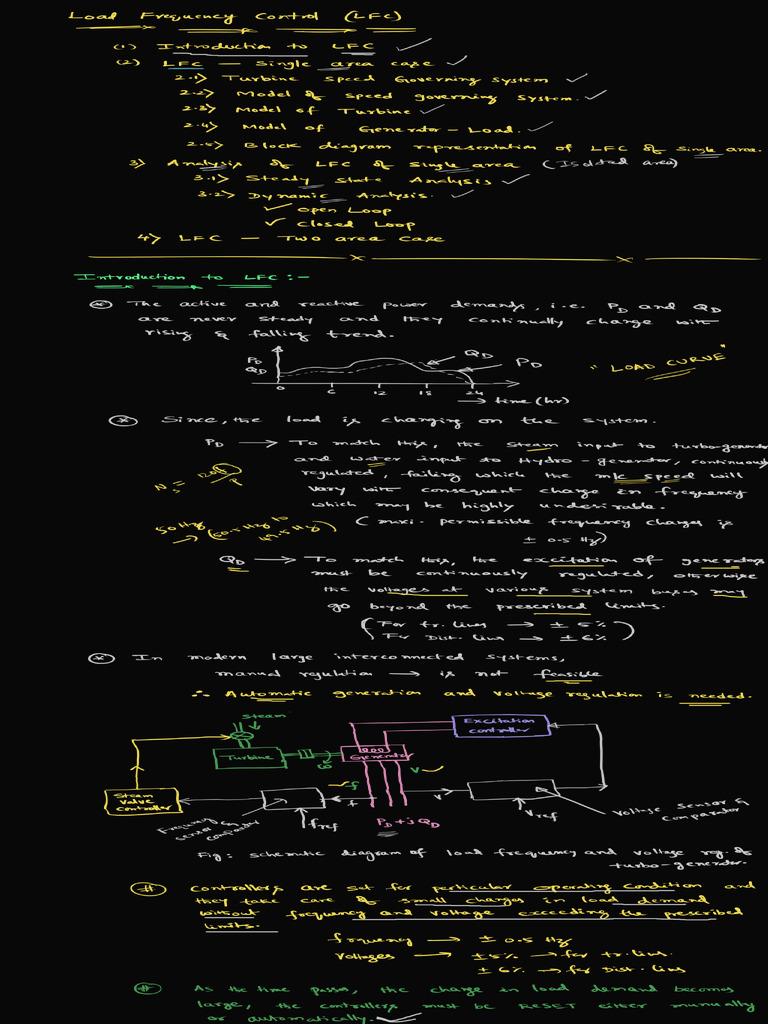 Load Frequency Control (LFC)
(1) Introduction to LFC
(2) LFC — Single area case
2.1> Turbine Speed Governing System
2.2> Model of Speed governing System.
2.3> Model of Turbine
2.4> Model of Generator-Load.
2.5> Block diagram representation of LFC of Single area.
3> Analysis of LFC of Single area (Isolated area)
3.1> Steady State Analysis
3.2> Dynamic Analysis.
open Loop
closed Loop
4> LFC — Two area case
Introduction to LFC :-
* The active and reactive power demands, i.e. PD and QD
are never steady and they continually change with
rising & falling trend.
PD
QD
QD
PD
"LOAD CURVE"
0 6 12 18 24
→ time (hr)
* Since, the load is changing on the system.
PD → To match this, the steam input to turbo-generator
and water input to Hydro-generator, continuously
regulated, failing which the m/c speed will
vary with consequent change in frequency
which may be highly undesirable.
(maxi. permissible frequency change is
± 0.5 Hz)
Ns = 120f/P
50 Hz → (50.5 Hz to 49.5 Hz)
QD → To match this, the excitation of generators
must be continuously regulated, otherwise
the voltages at various system buses may
go beyond the prescribed limits.
(For tr. lines → ± 5%
For Dist. lines → ± 6%)
* In modern large interconnected systems,
manual regulation → is not feasible
∴ Automatic generation and voltage regulation is needed.
Steam
Excitation controller
Turbine
Generator
V
f
Steam Valve controller
f
V
fref
Vref
PD + jQD
Frequency Sensor & comparator
Voltage sensor & comparator
Fig: schematic diagram of load frequency and voltage reg. of
turbo-generator.
# Controllers are set for particular operating condition and
they take care of small changes in load demand
without frequency and voltage exceeding the prescribed
limits.
frequency → ± 0.5 Hz
Voltages → ± 5% → for tr. lines.
± 6% → for Dist. lines
# As the time passes, the change in load demand becomes
large, the controllers must be RESET either manually
or automatically.